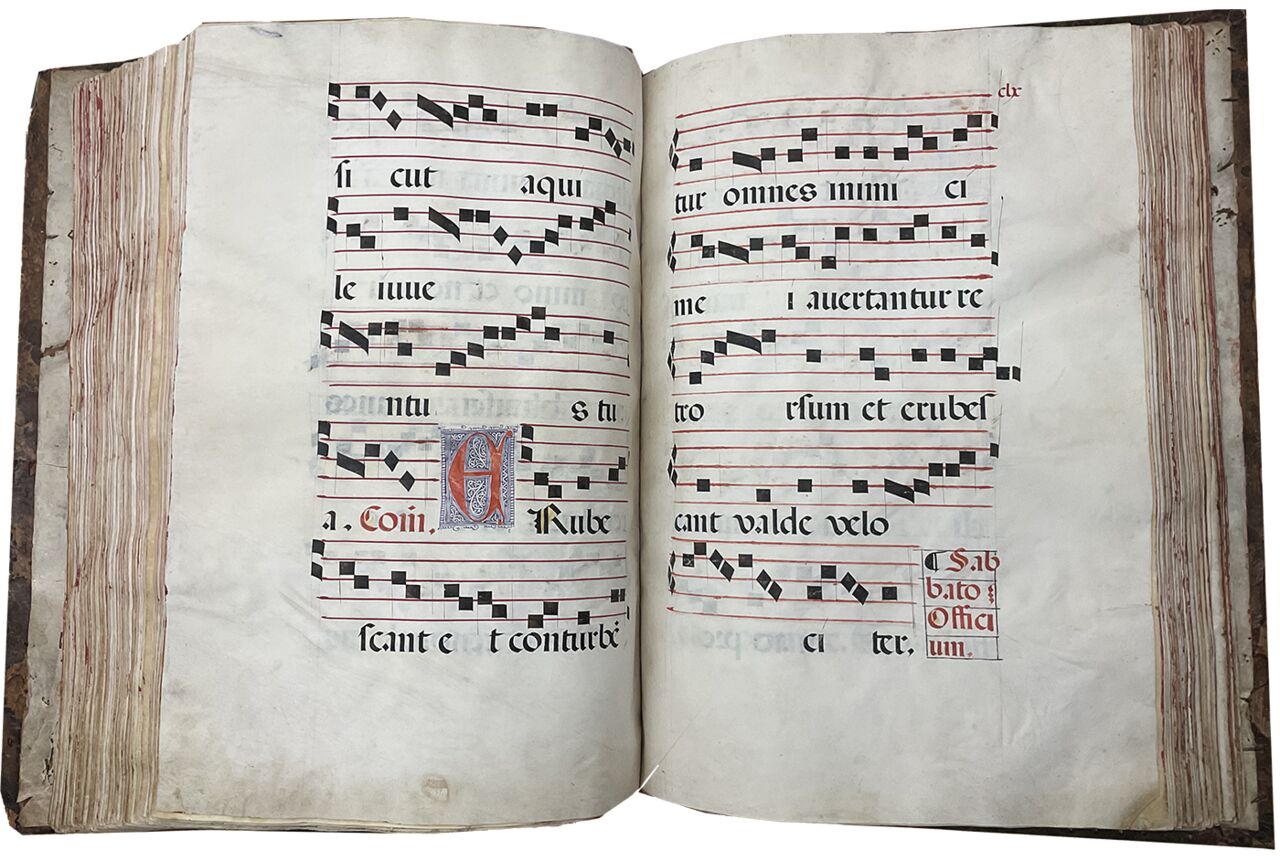 si cut aqui
le iuue
ntu s tu
a. Com̃. E Rube
scant e t conturbẽ
clx
tur omnes inimi ci
me i auertantur re
tro rsum et erubes
cant valde velo
ci ter.
¶ Sab
bato
Offici
um.